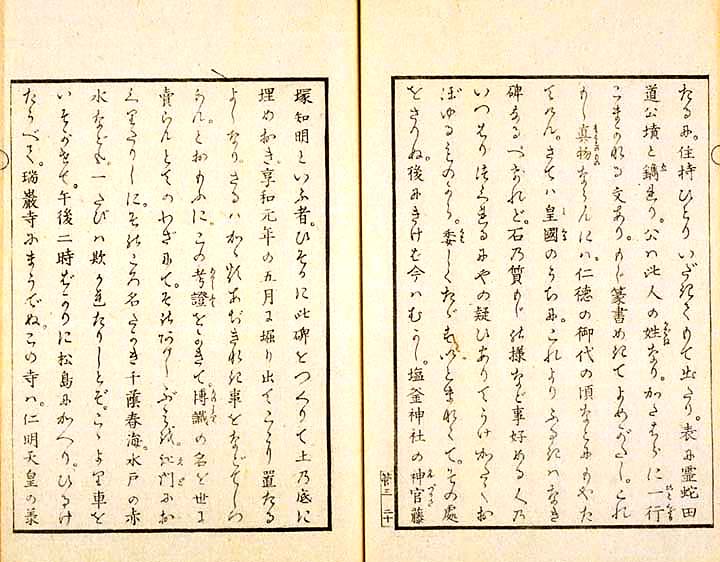 たるに。住持ひとりいだきてもて出たり。表に霊蛇田
道公墳と鐫れり。公は此人の姓なり。かたはらに一行
こまかなる文あり。もじ篆書めきてよめがたし。これ
もし真物ならんには。仁徳の御代の頃なるにもやた
てけん。さては皇國のうちに。これよりふるきはなき
碑なるべけれど。石乃質もじの様など事好める人乃
いつはり作れるにやの疑ひありてうけがたくお
ぼゆるものから。委しくたださんいとまなくて。その處
をさりぬ。後にきけば今はむかし。塩釜神社の神官藤
廿三 二十
塚知明といふ者。ひそかに此碑をつくりて土乃底に
埋めおき。享和元年の五月に堀り出てここに置たる
よしなり。さるはかくあぢきなき事をなどてしつ
らん。とおもふに。この考證をかきて。博識の名を世に
賣らんとてのわざにて。その 江門にお
くりたりしに。そのころ名だかき千蔭春海。水戸の赤
水なども。一たびは欺かれたりしとぞ。ここより車を
いそがせて。午後二時ばかりに松島にかへり。ひるけ
たうべて。瑞巌寺にまうでぬ。この寺は。仁明天皇の承